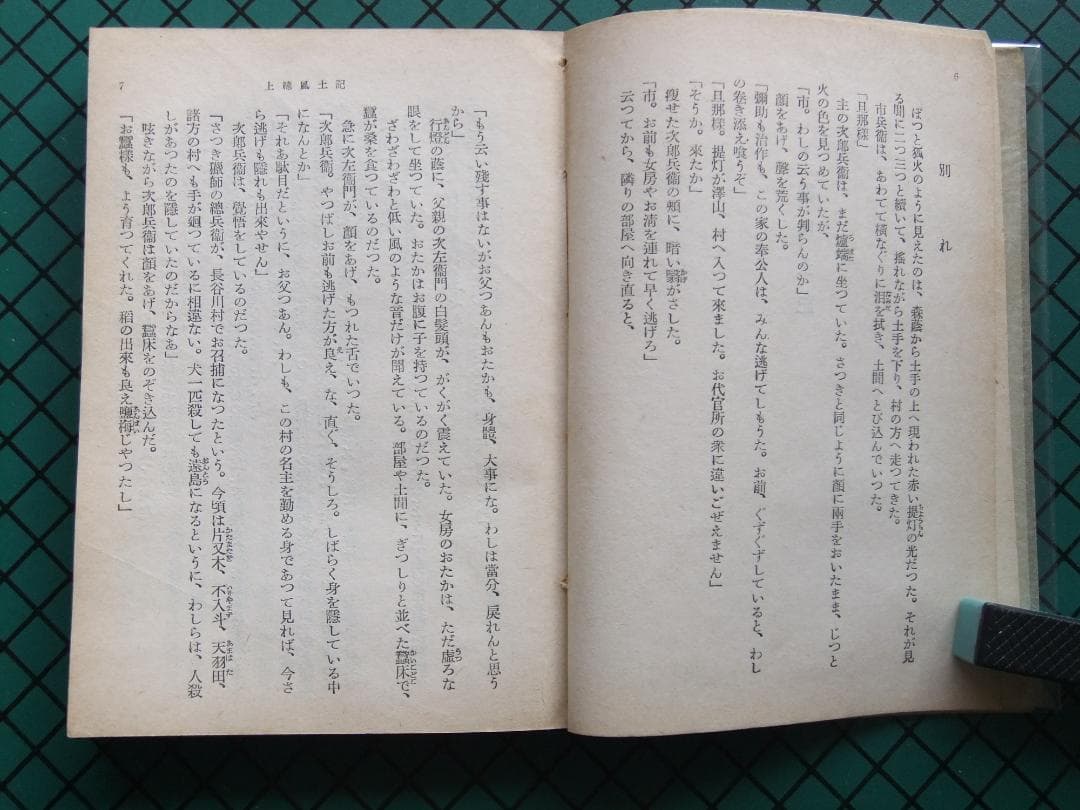 6
別れ
ぽつと狐火のように見えたのは、森蔭から土手の上へ現われた赤い提灯の光だつた。それが見
る間に二つ三つと續いて、搖れながら土手を下り、村の方へ走つてきた。
市兵衞は、あわてて横なぐりに泪を拭き、土間へとび込んでいつた。
「旦那樣」
主の次郎兵衞は、まだ爐端に坐つていた。さつきと同じように顔に兩手をおいたまま、じつと
火の色を見つめていたが、
「市。わしの云う事が判らんのか」
顔をあげ、聲を荒くした。
「彌助も治作も、この家の奉公人は、みんな逃げてしもうた。お前、ぐずぐずしていると、わし
の巻き添え喰うぞ」
「旦那樣。提灯が澤山、村へ入つて來ました。お代官所の衆に違いごぜえません」
「そうか。來たか」
瘦せた次郎兵衞の頬に、暗い翳がさした。
「市。お前も女房やお淸を連れて早く逃げろ」
云つてから、隣りの部屋へ向き直ると、
上總風土記
7
「もう云い殘す事はないがお父つあんもおたかも、身體、大事にな。わしは當分、戻れんと思う
から」
行燈の蔭に、父親の次左衞門の白髮頭が、がくがく震えていた。女房のおたかは、ただ虛ろな
眼をして坐つていた。おたかはお腹に子を持つているのだつた。
ざわざわざわと低い風のような音だけが聞えている。部屋や土間に、ぎつしりと並べた蠶床で、
蠶が桑を食つているのだつた。
急に次左衞門が、顔をあげ、もつれた舌でいつた。
「次郎兵衞。やつぱしお前も逃げた方が良え、な、直ぐ、そうしろ。しばらく身を隱している中
になんとか」
「それあ駄目だというに、お父つあん。わしも、この村の名主を勤める身であつて見れば、今さ
ら逃げも隱れも出來やせん」
次郎兵衞は、覺悟をしているのだつた。
「さつき獵師の總兵衞が、長谷川村でお召捕になつたという。今頃は片又木、不入斗、天羽田、
諸方の村へも手が廻つているに相違ない。犬一匹殺しても遠島になるというに、わしらは、人殺
しがあつたのを隱していたのだからなあ」
呟きながら次郎兵衞は顔をあげ、蠶床をのぞき込んだ。
「お蠶樣も、よう育つてくれた。稻の出來も良え鹽梅じやつたし」